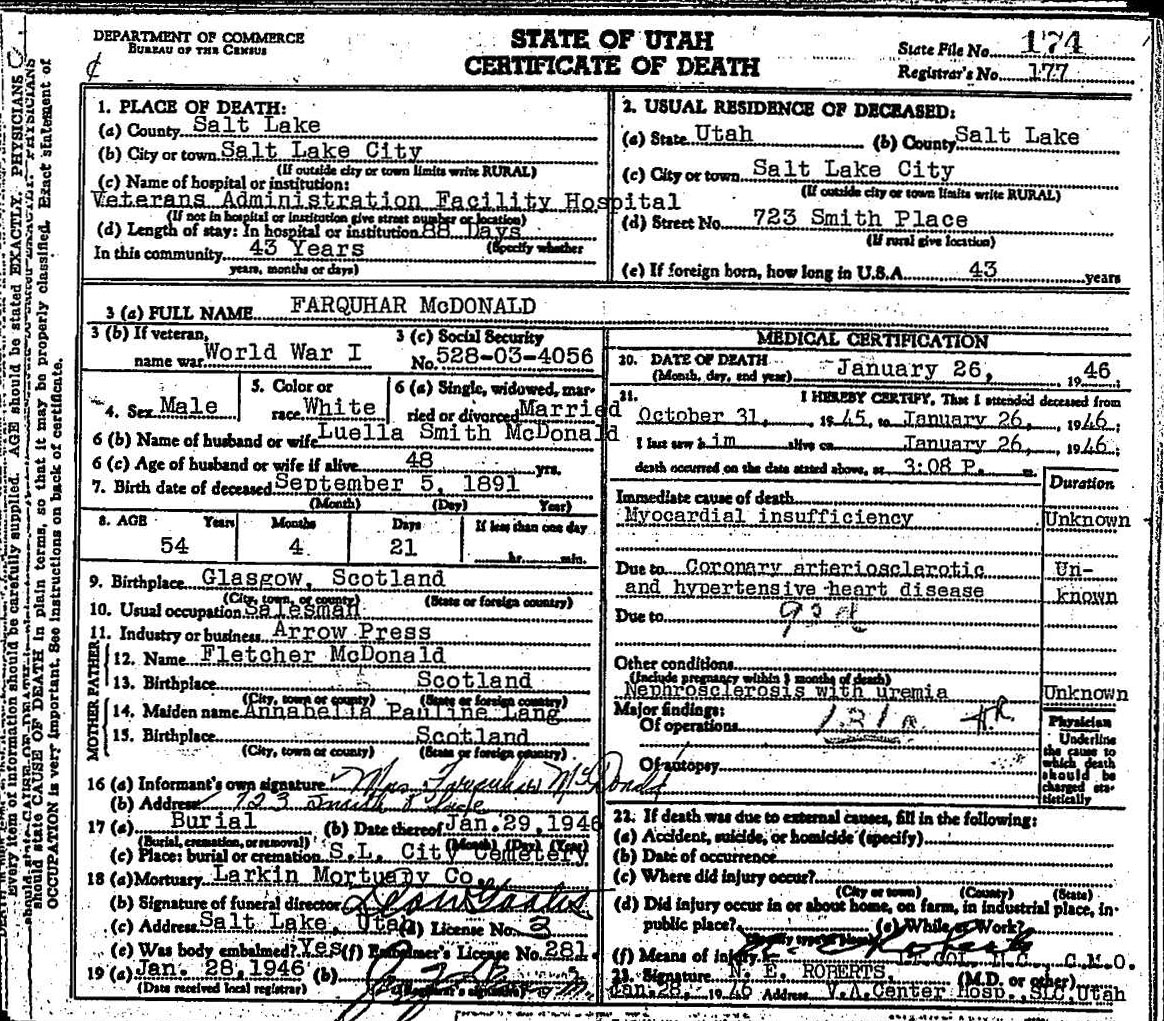 DEPARTMENT OF COMMERCE
BUREAU OF THE CENSUS
STATE OF UTAH
CERTIFICATE OF DEATH
State File No. 174
Registrar's No. 177
1. PLACE OF DEATH:
(a) County Salt Lake
(b) City or town Salt Lake City
(If outside city or town limits write RURAL)
(c) Name of hospital or institution:
Veterans Administration Facility Hospital
(If not in hospital or institution give street number or location)
(d) Length of stay: In hospital or institution 88 Days
(Specify whether
In this community 43 Years
years, months or days)
2. USUAL RESIDENCE OF DECEASED:
(a) State Utah (b) County Salt Lake
(c) City or town Salt Lake City
(If outside city or town limits write RURAL)
(d) Street No. 723 Smith Place
(If rural give location)
(e) If foreign born, how long in U.S.A. 43 years
3 (a) FULL NAME FARQUHAR McDONALD
3 (b) If veteran, name war World War I
3 (c) Social Security No. 528-03-4056
4. Sex Male
5. Color or race White
6 (a) Single, widowed, married or divorced Married
6 (b) Name of husband or wife Luella Smith McDonald
6 (c) Age of husband or wife if alive 48 yrs.
7. Birth date of deceased September 5, 1891
(Month) (Day) Year)
8. AGE Years Months Days If less than one day
54 4 21 hr. min.
9. Birthplace Glasgow, Scotland
(City, town, or county) (State or foreign country)
10. Usual occupation Salesman
11. Industry or business Arrow Press
FATHER
12. Name Fletcher McDonald
13. Birthplace Scotland
(City, town or county) (State or foreign country)
MOTHER
14. Maiden name Annabella Pauline Lang
15. Birthplace Scotland
(City, town or county) (State or foreign country)
16 (a) Informant's own signature Mrs Farquhar McDonald
(b) Address 723 Smith Place
17 (a) Burial (b) Date thereof Jan. 29, 1946
(Burial, cremation, or removal) (Month) (Day) (Year)
(c) Place: burial or cremation S.L. City Cemetery
18 (a) Mortuary Larkin Mortuary Co.
(b) Signature of funeral director
(c) Address Salt Lake, Utah (d) License No. 3
(e) Was body embalmed? Yes (f) Embalmer's License No. 281
19 (a) Jan. 28, 1946 (b)
(Date received local registrar) (Registrar's signature)
MEDICAL CERTIFICATION
20. DATE OF DEATH January 26, 1946
(Month, day, and year)
21. I HEREBY CERTIFY, That I attended deceased from
October 31, 1945, to January 26, 1946;
I last saw him alive on January 26, 1946;
death occurred on the date stated above, at 3:08 P. m.
Duration
Immediate cause of death
Myocardial insufficiency Unknown
Due to Coronary arteriosclerotic Un-
and hypertensive heart disease known
Due to 93d
Other conditions
(Include pregnancy within 3 months of death)
Nephrosclerosis with uremia Unknown
Major findings:
Of operations 131a
Of autopsy
Physician
Underline
the cause to
which death
should be
charged sta-
tistically
22. If death was due to external causes, fill in the following:
(a) Accident, suicide, or homicide (specify)
(b) Date of occurrence
(c) Where did injury occur?
(City or town) (County) (State)
(d) Did injury occur in or about home, on farm, in industrial place, in-
public place? (e) While at Work?
(Specify type of place)
(f) Means of injury
LT. COL. M.C., C.M.O.
23. Signature N. E. ROBERTS, (M.D. or other)
Jan. 28, 1946 Address V.A. Center Hosp., SLC, Utah
Every item of information should be carefully supplied. AGE should be stated EXACTLY. PHYSICIANS
should state CAUSE OF DEATH in plain terms, so that it may be properly classified. Exact statement of
OCCUPATION is very important. See instructions on back of certificate.